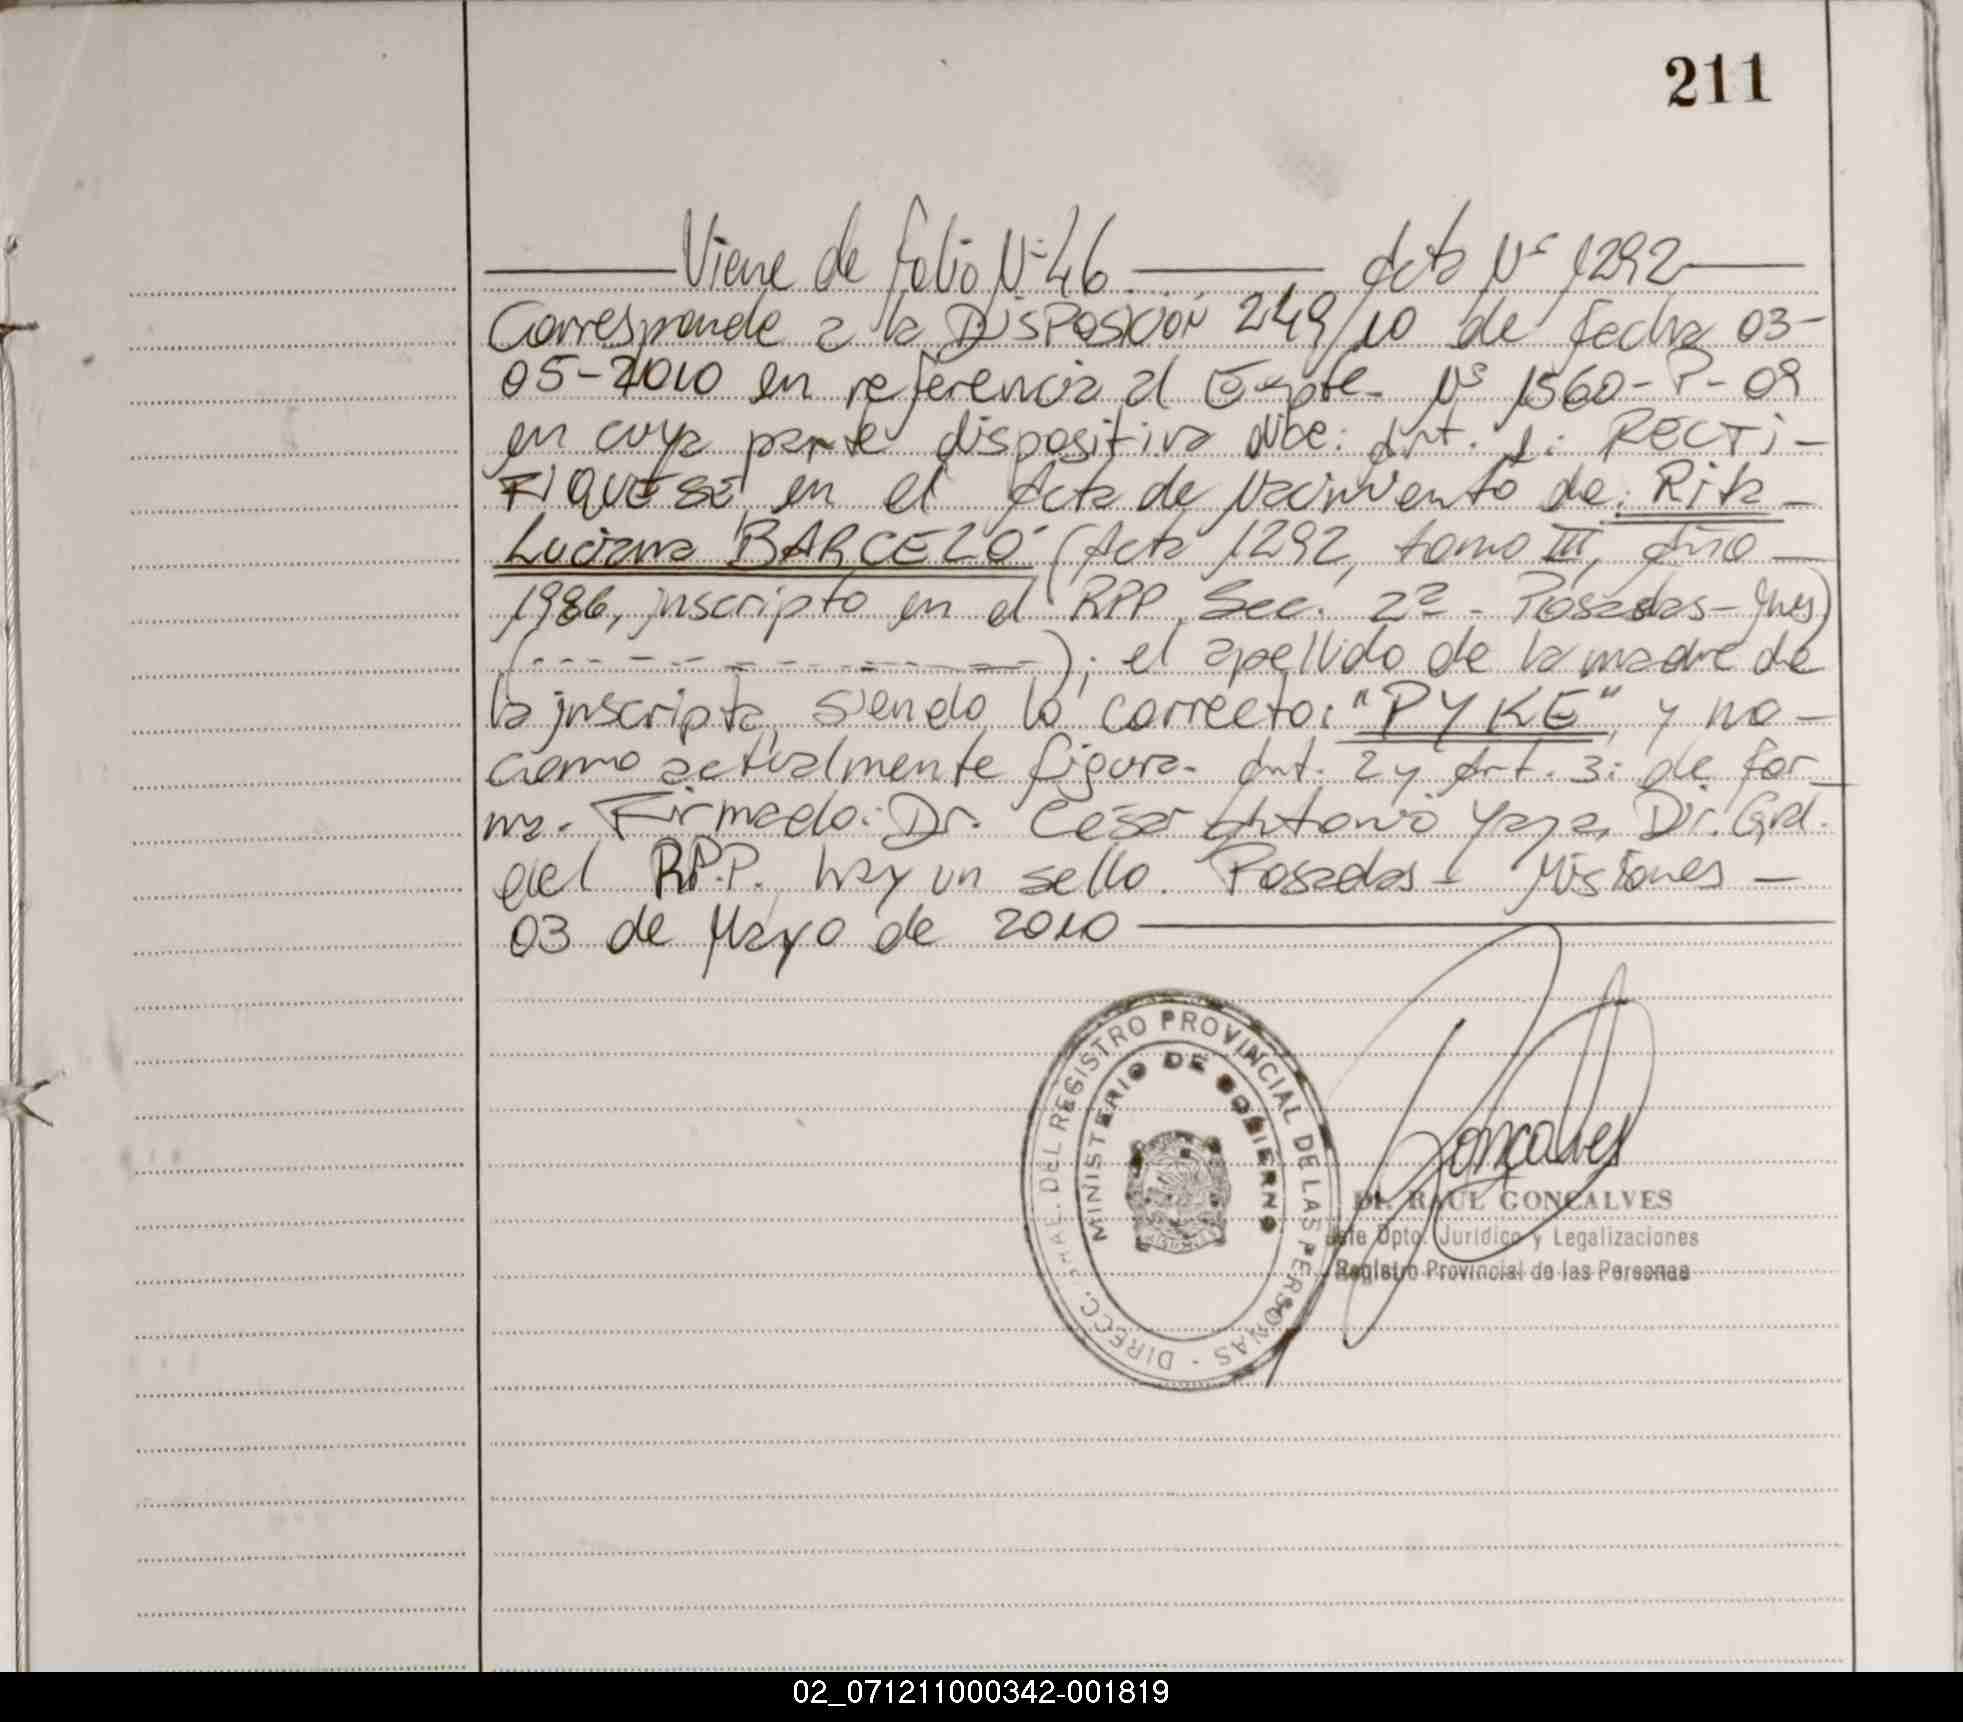 211
Viene de folio Nº 46 Acta Nº 1292
Corresponde a la DISPOSICION 249/10 de fecha 03-
05-2010 en referencia al Expte. Nº 1560-P-09
en cuya parte dispositiva dice: Art. 1: RECTI-
FIQUESE en el Acta de Nacimiento de: Rita
Luciana BARCELO (Acta 1292, tomo III, Año
1986, inscripto en el RPP, Sec. 2ª - Posadas - Mnes)
(- - - - - - - - - - -); el apellido de la madre de
la inscripta, siendo lo correcto: "PYKE", y no
como actualmente figura. Art. 2 y Art. 3: de for-
ma. Firmado: Dr. César Antonio Yaya, Dir. Gral.
del RP.P. hay un sello. Posadas - Misiones
03 de Mayo de 2010
DIRECC. GRAL. DEL REGISTRO PROVINCIAL DE LAS PERSONAS -
MINISTERIO DE GOBIERNO
Gonçalves
Dr. RAUL GONCALVES
Jefe Dpto. Jurídico y Legalizaciones
Registro Provincial de las Personas
02_071211000342-001819